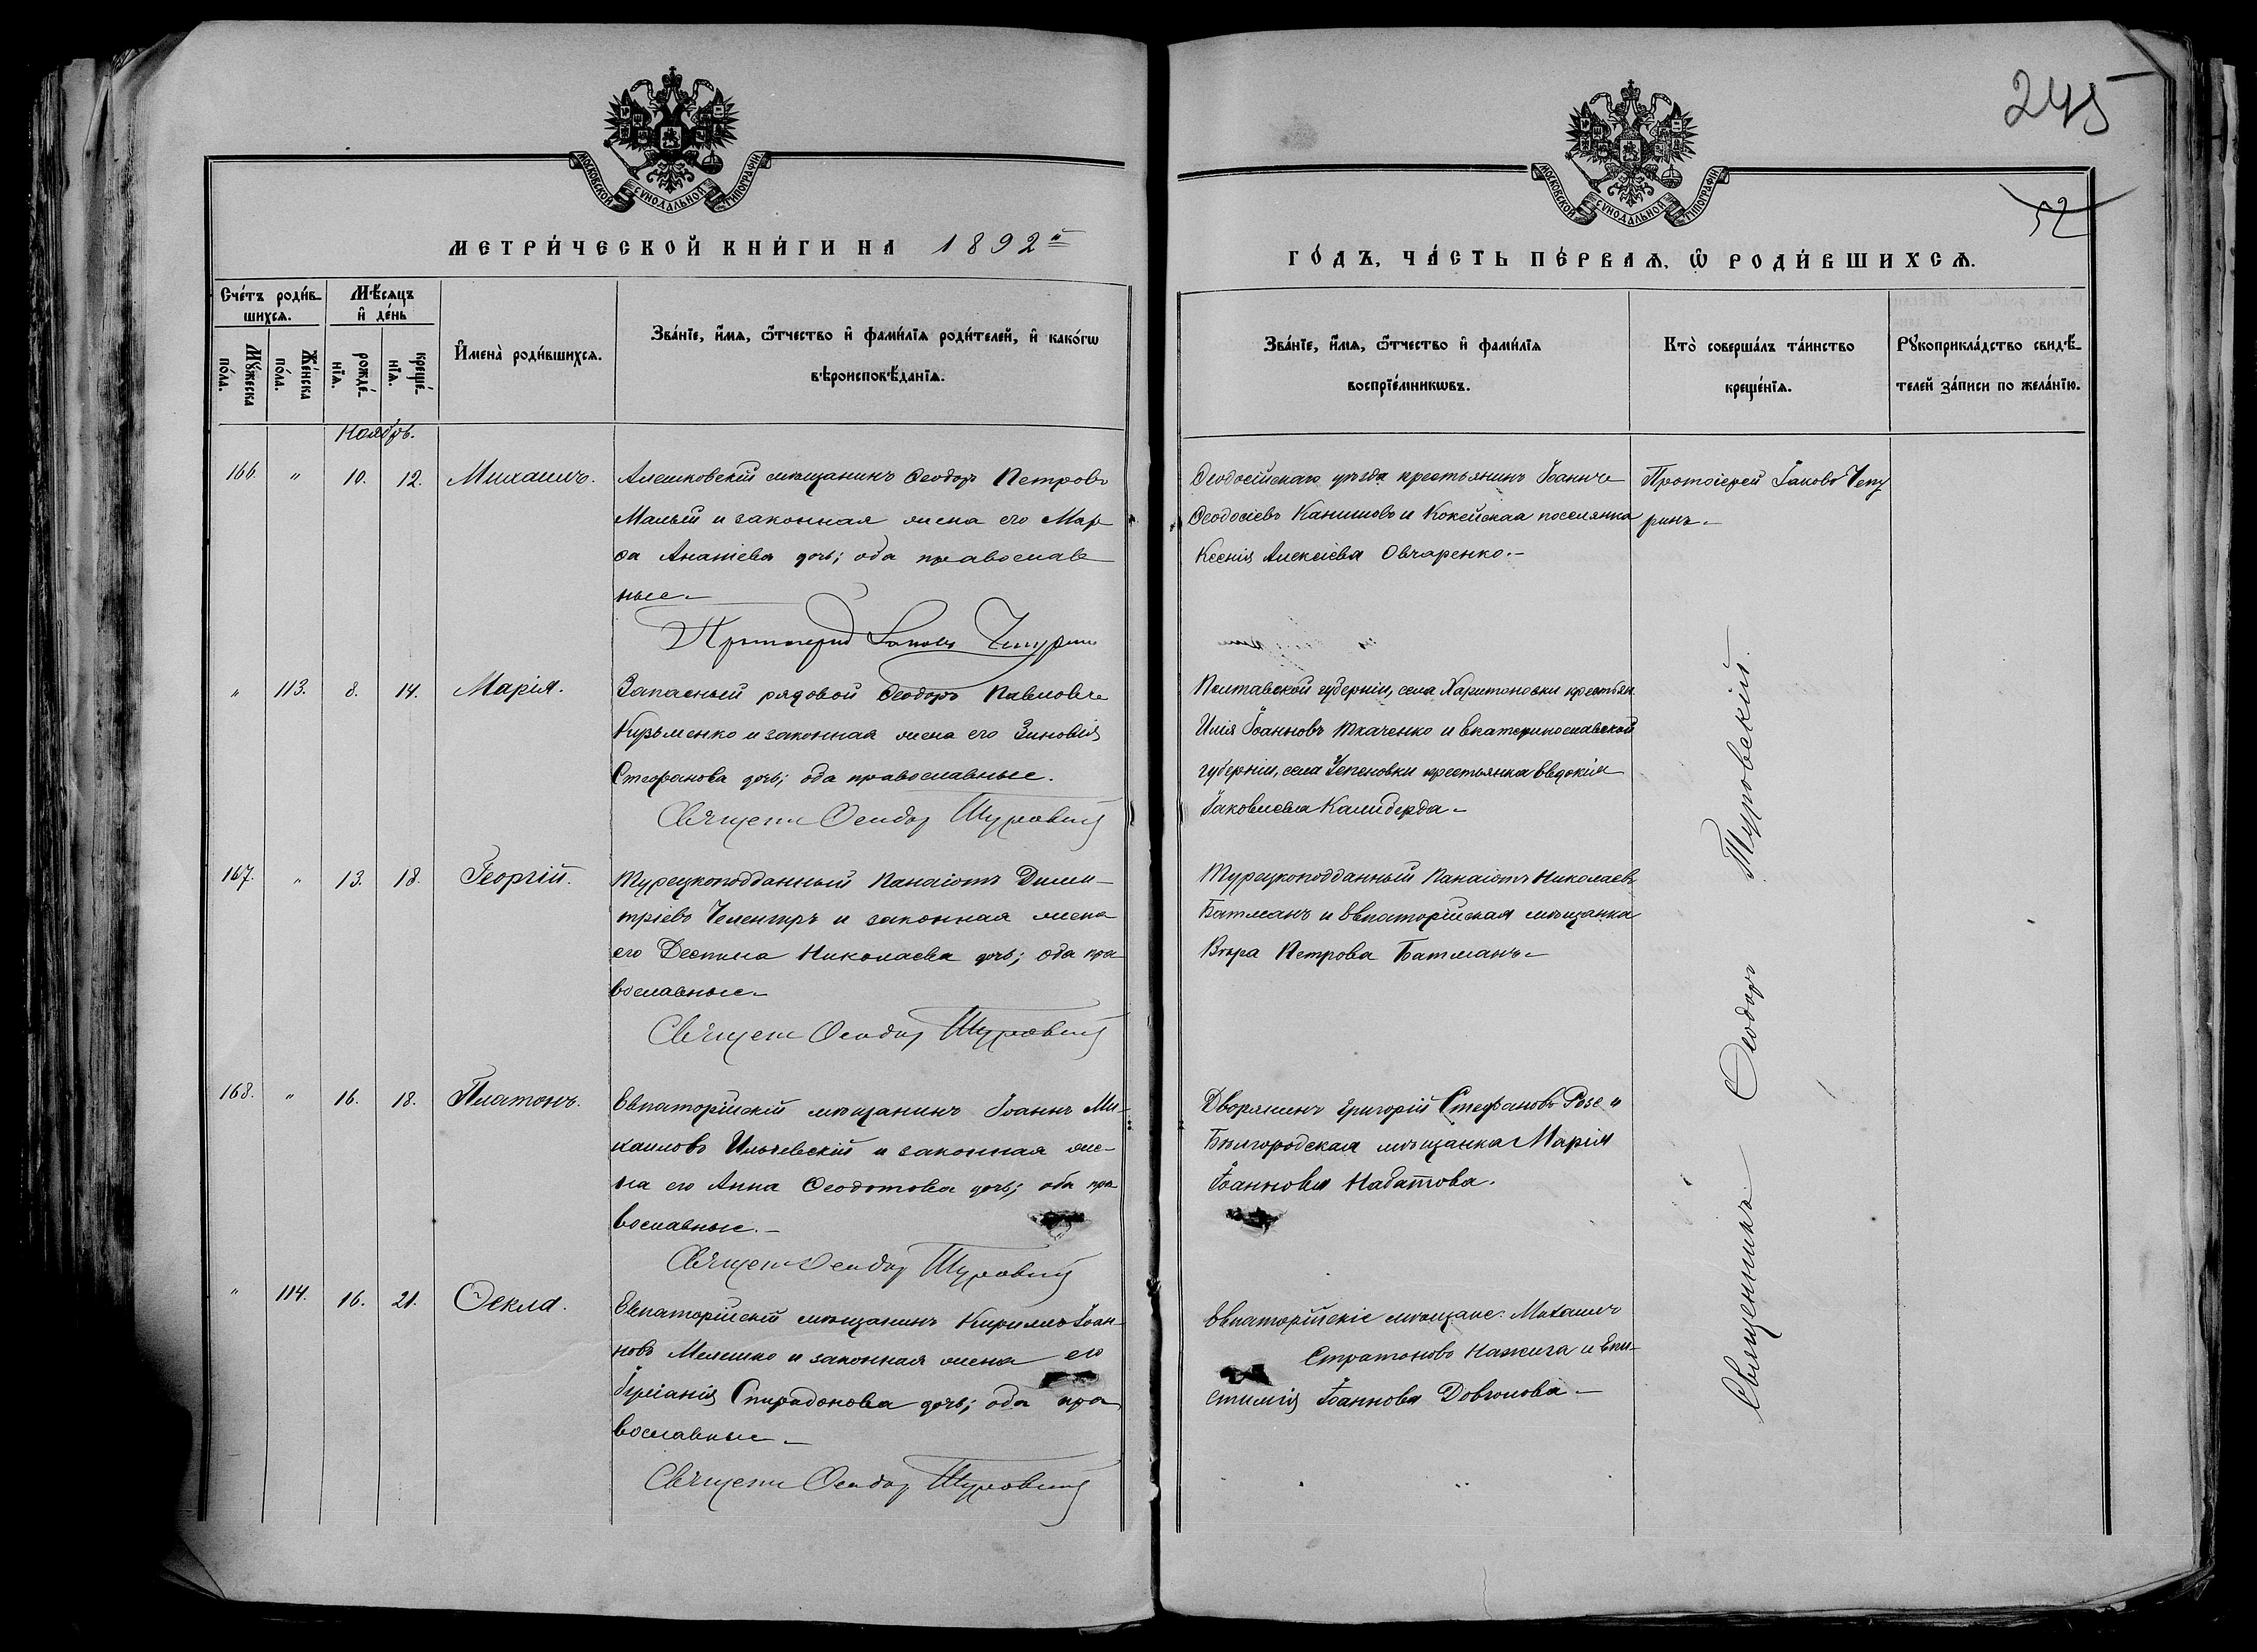 МОСКОВСКОЙ СѴНОДАЛЬНОЙ ТИПОГРАФІИ
МЕТРИ́ЧЕСКОЙ КНИ́ГИ НА 1892й
Сче́тъ роди́вшихся.
Мѣ́сяцъ и҆ де́нь
Мꙋ́жеска по́ла.
Же́нска по́ла.
рожде́нїѧ.
креще́нїѧ.
И҆мена̀ роди́вшихсѧ.
Зва́нїе, и҆́мѧ, ѻ҆́тчество и҆ фами́лїѧ роди́телей, и҆ како́гѡ
вѣроисповѣ́данїѧ.
Ноябрь.
166. " 10. 12. Михаилъ.
Алешковскій мѣщанинъ Ѳеодоръ Петровъ
Малый и законная жена его Мар
ѳа Ананіева дочь; оба православ
ные.
Протоіерей Іаковъ Чепуринъ
" 113. 8. 14. Марія.
Запасный рядовой Ѳеодоръ Павловъ
Кузьменко и законная жена его Зиновія
Стефанова дочь; оба православные.
Священ Ѳеодор Туровскій
167. " 13. 18. Георгій.
Турецкоподданный Панаіотъ Дими-
тріевъ Челенгиръ и законная жена
его Деспина Николаева дочь; оба пра
вославные.
Священ Ѳеодор Туровскій
168. " 16. 18. Платонъ.
Евпаторійскій мѣщанинъ Іоаннъ Ми-
хаиловъ Ильчевскій и законная же-
на его Анна Ѳеодотова дочь; оба пра
вославные.
Священ Ѳеодор Туровскій
" 114. 16. 21. Ѳекла.
Евпаторійскій мѣщанинъ Кириллъ Іоан-
новъ Мелешко и законная жена его
Спиридонова дочь; оба пра
вославные.
Священ Ѳеодор Туровскій
245
52
МОСКОВСКОЙ СѴНОДАЛЬНОЙ ТИПОГРАФІИ
ГО́ДЪ, ЧА́СТЬ ПЕ́РВАѦ, Ѡ҆ РОДИ́ВШИХСѦ.
Зва́нїе, и҆́мѧ, ѻ҆́тчество и҆ фами́лїѧ
воспрїе́мникѡвъ.
Кто̀ соверша́лъ та́инство
креще́нїѧ.
Рꙋкоприкла́дство свидѣ́-
телей за́писи по жела́нїю.
Ѳеодосійскаго уѣзда крестьянинъ Іоаннъ
Ѳеодосіевъ Канишовъ и Кокейская поселянка
Ксенія Алексіева Овчаренко.
Протоіерей Іаковъ Чепу
ринъ.
Полтавской губерніи, села Харитоновки крестьян
Илія Іоанновъ Ткаченко и Екатеринославской
губерніи, села Чепеновки крестьянка Евдокія
Іаковлева Калиберда
Турецкоподданный Панаіотъ Николаевъ
Батманъ и Евпаторійская мѣщанка
Вѣра Петрова Батманъ
Дворянинъ Григорій Стефановъ Розе и
Бѣлгородская мѣщанка Марія
Іоаннова Набатова.
Евпаторійскіе мѣщане: Михаилъ
Стратоновъ Нажига и Епи-
стимія Іоаннова Довгонова
Священникъ Ѳеодоръ Туровскій.